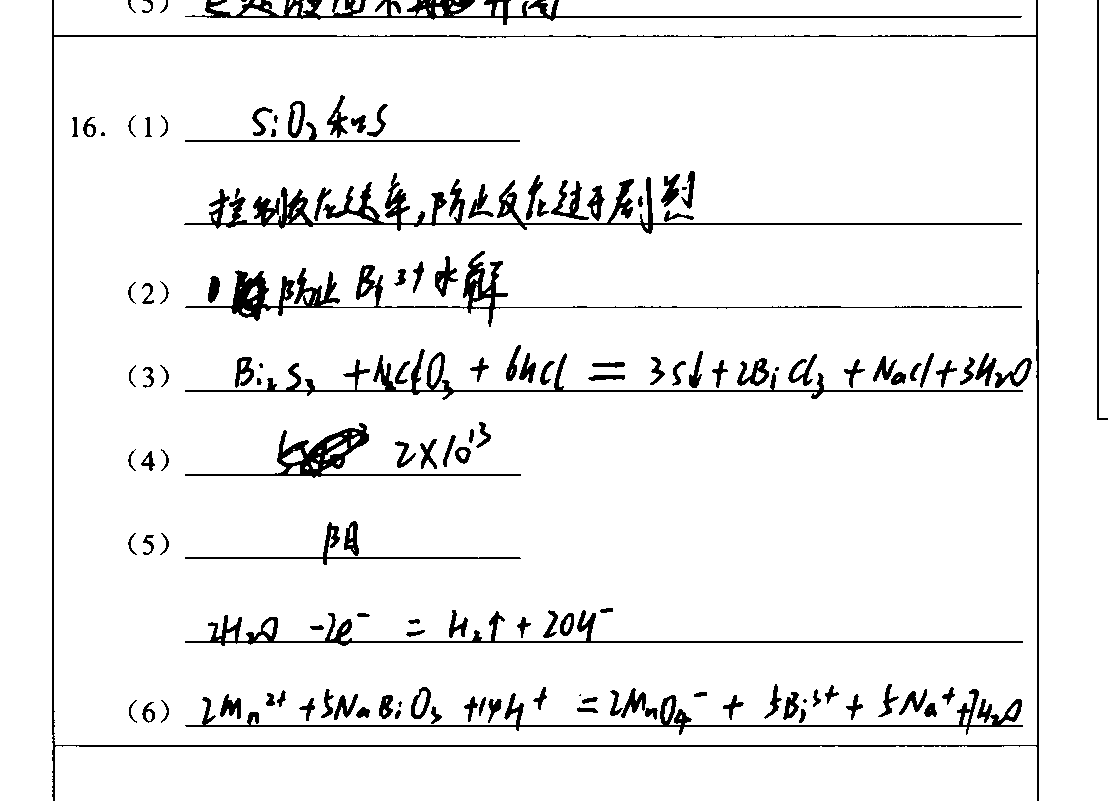 (5) 已处液面不再
16. (1) SiO₂和S
控制反应速率,防止反应过于剧烈
(2) 防止 Bi³⁺水解
(3) Bi₂S₃ + NaClO₃ + 6HCl = 3S↓ + 2BiCl₃ + NaCl + 3H₂O
(4) 2×10¹³
(5) 阴
2H₂O -2e⁻ = H₂↑ + 2OH⁻
(6) 2Mn²⁺ + 5NaBiO₃ + 14H⁺ = 2MnO₄⁻ + 5Bi³⁺ + 5Na⁺ + 7H₂O